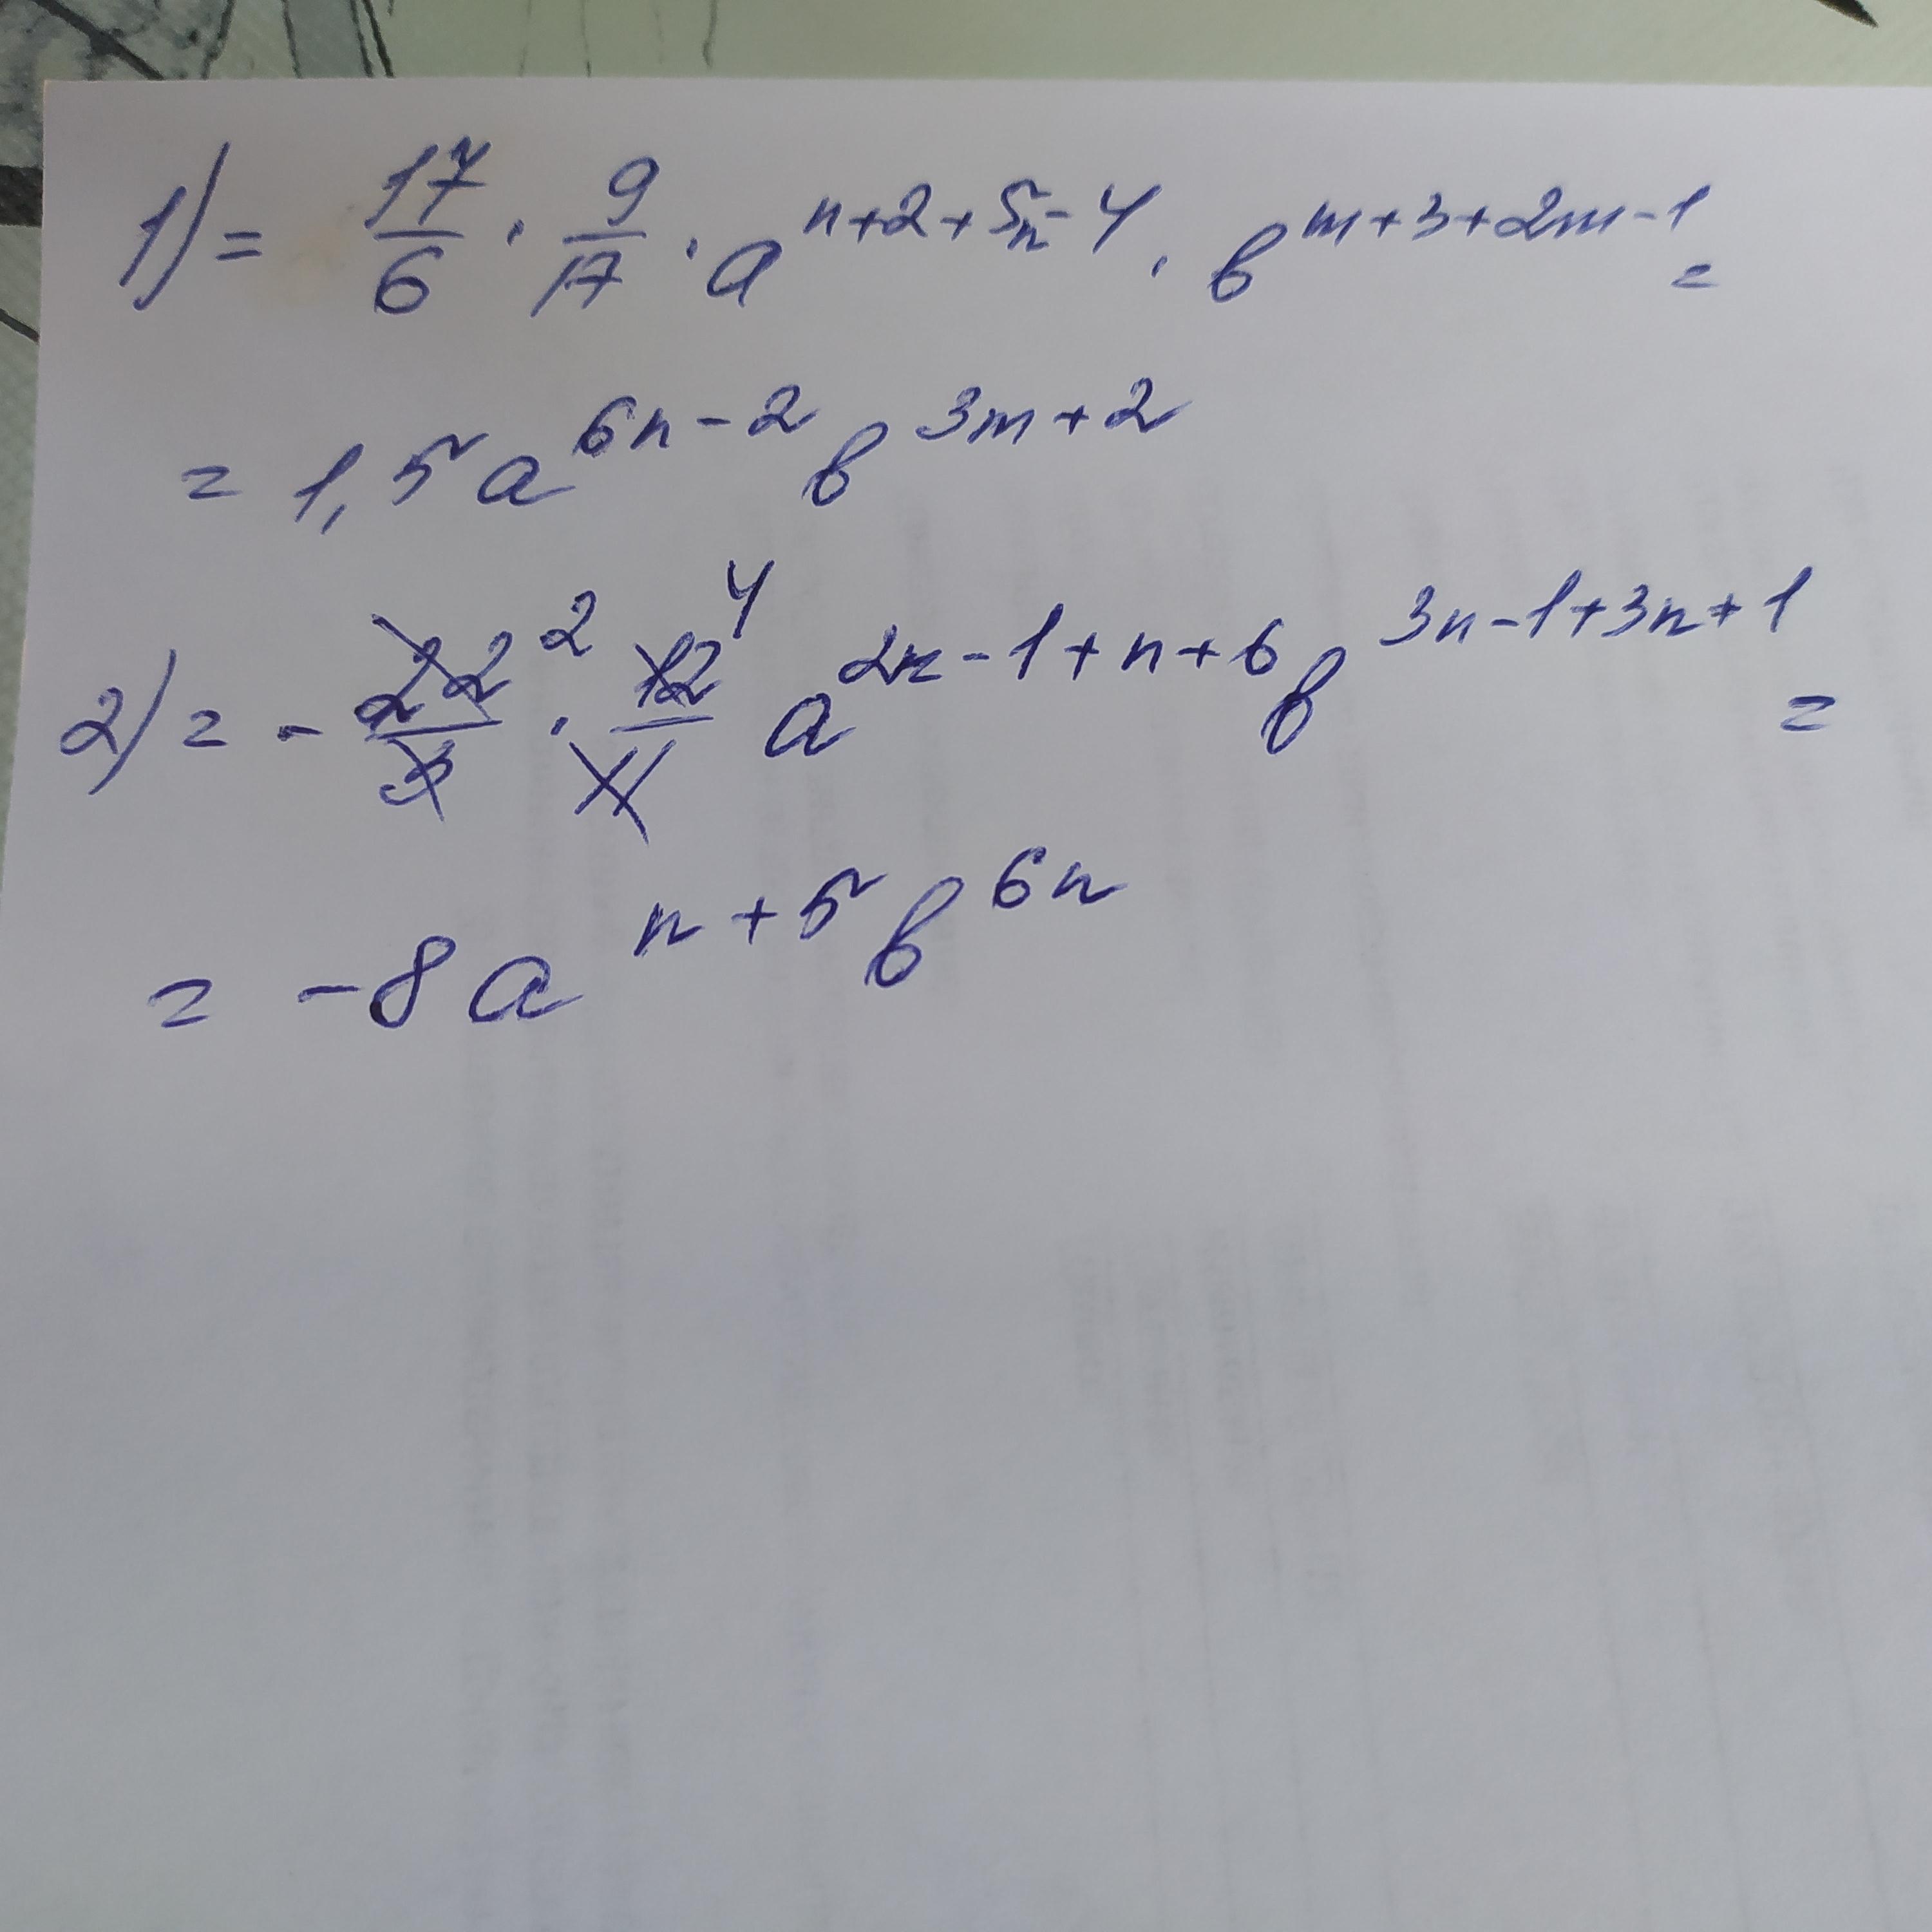 1) = 17/6 · 9/17 · a^(n+2+5n-4) · b^(m+3+2m-1) =
= 1,5a^(6n-2) b^(3m+2)
2) = - 22/3 2 · 12/11 4 a^(2n-1+n+6) b^(3n-1+3n+1) =
= -8a^(n+5) b^(6n)